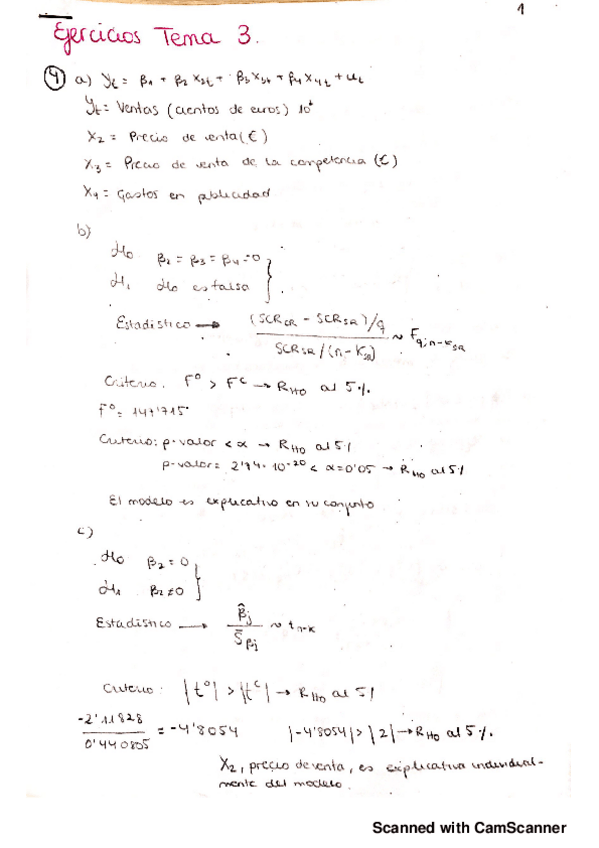 1
Ejercicios Tema 3.
④ a) yt = β1 + β2 x2t + β3 x3t + β4 x4t + ut
yt = Ventas (cientos de euros)
X2 = Precio de venta (€)
X3 = Precio de venta de la competencia (€)
X4 = Gastos en publicidad
b)
H0 β2 = β3 = β4 = 0
H1 H0 es falsa
Estadístico → (SCR_CR - SCR_SR)/q / SCR_SR/(n-K_SR) ~ F q; n-K_SR
Criterio: F⁰ > Fᶜ → R_H0 al 5%
F⁰ = 147'715
Criterio: p-valor < α → R_H0 al 5%
p-valor = 2'74·10⁻²⁰ < α = 0'05 → R_H0 al 5%
El modelo es explicativo en su conjunto
c)
H0 β2 = 0
H1 β2 ≠ 0
Estadístico → β̂j / Ŝβj ~ t n-k
Criterio: |t⁰| > |tᶜ| → R_H0 al 5%
-2'11828 / 0'440805 = -4'8054 |-4'8054| > |2| → R_H0 al 5%.
X2, precio de venta, es explicativa individual-
mente del modelo.
Scanned with CamScanner